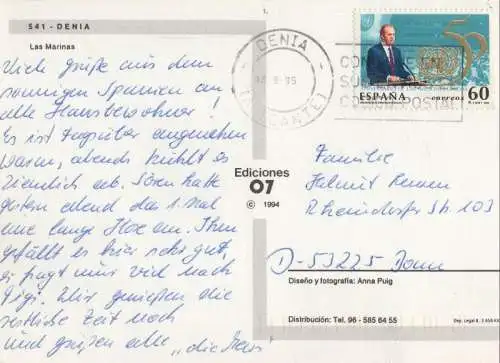 541 - DENIA
Las Marinas
Viele Grüße aus dem
sonnigen Spanien an
alle Hausbewohner!
Es ist tagsüber angenehm
warm, abends kühlt es
ziemlich ab. Sören hatte
gestern abend das 1. Mal
eine lange Hose an. Ihm
gefällt es hier sehr gut,
er fragt nur viel nach
Gigi. Wir genießen die
restliche Zeit noch
und grüßen alle "die
Ediciones
07
© 1994
DENIA
(ALICANTE)
ESPAÑA
correos
60
50
Familie
Helmut
Rheindorfer Str. 103
D-53225 Bonn
Diseño y fotografía: Anna Puig
Distribución: Tel. 96 - 585 64 55
Dep. Legal B.